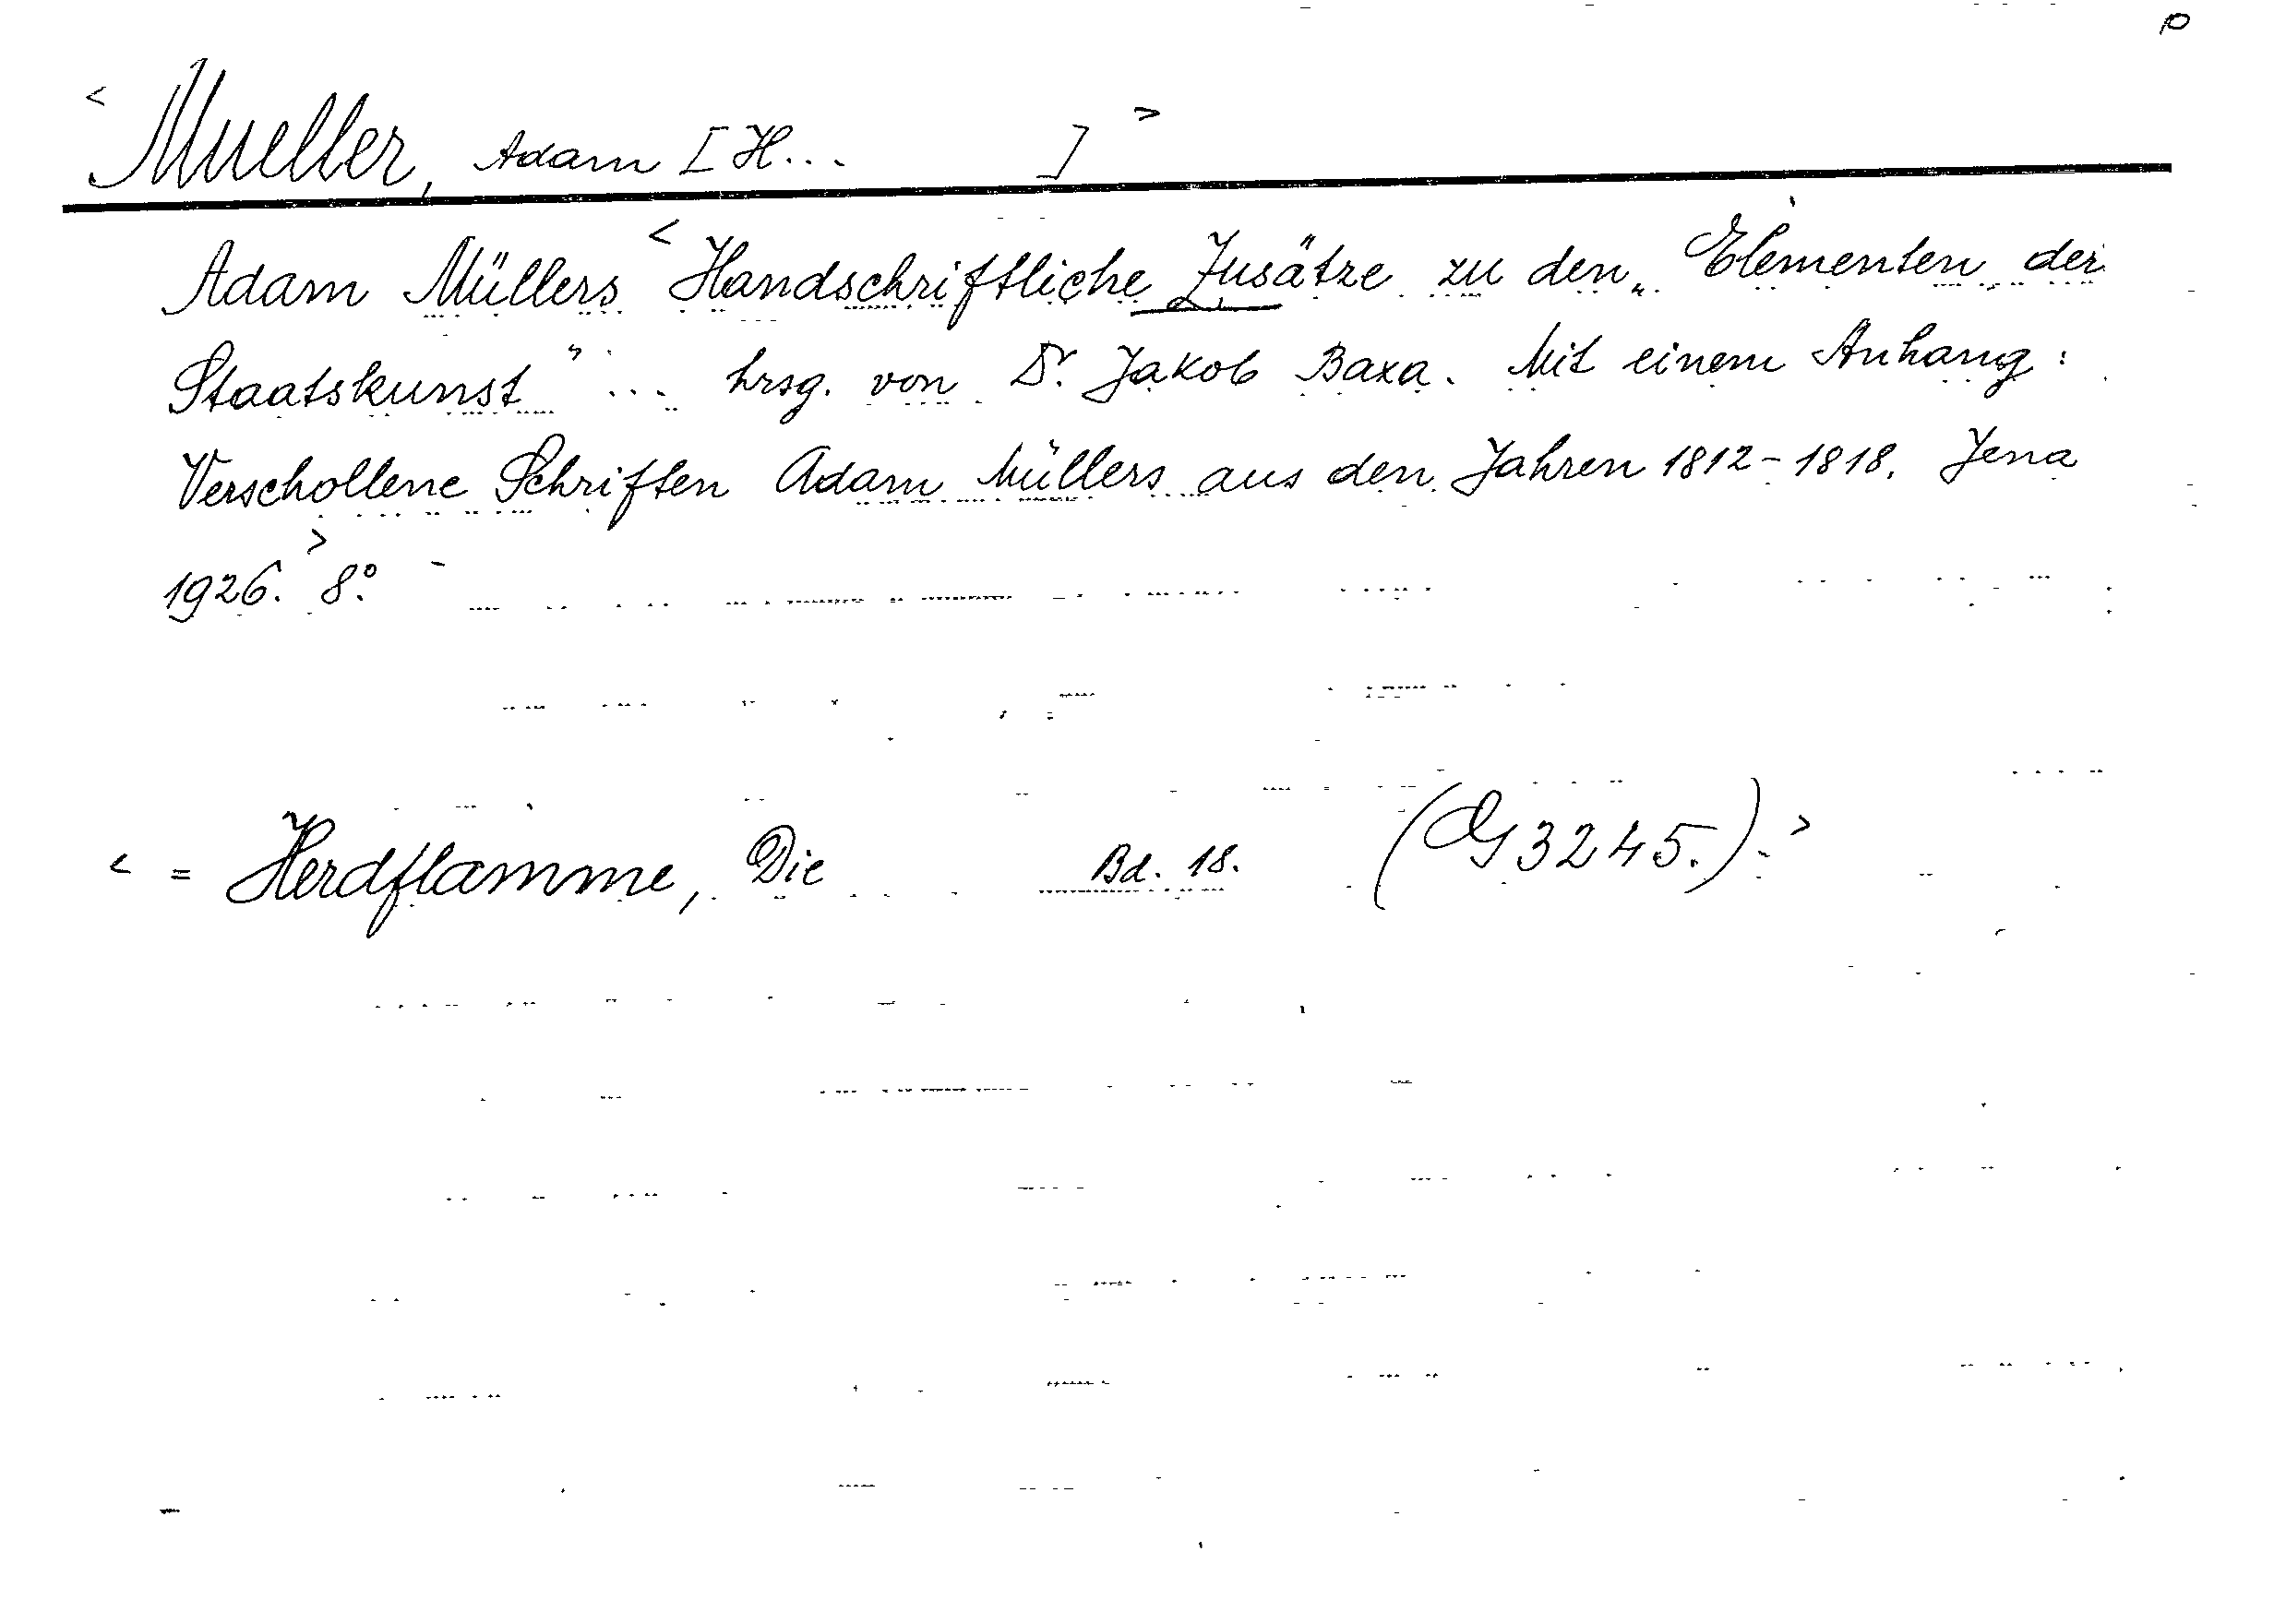 < Mueller, Adam [H... ] >
Adam Müllers < Handschriftliche Zusätze zu den „Elementen der
Staatskunst" ... hrsg. von Dr. Jakob Baxa. Mit einem Anhang:
Verschollene Schriften Adam Müllers aus den Jahren 1812-1818. Jena
1926. > 8°.
< = Herdflamme, Die Bd. 18. (G 3245.). >